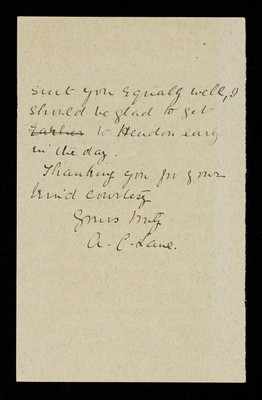 suit you equally well, I
should be glad to get
Earlier to Hendon early
in the day.
Thanking you for your
kind courtesy
Yours truly
A. C. Lane.